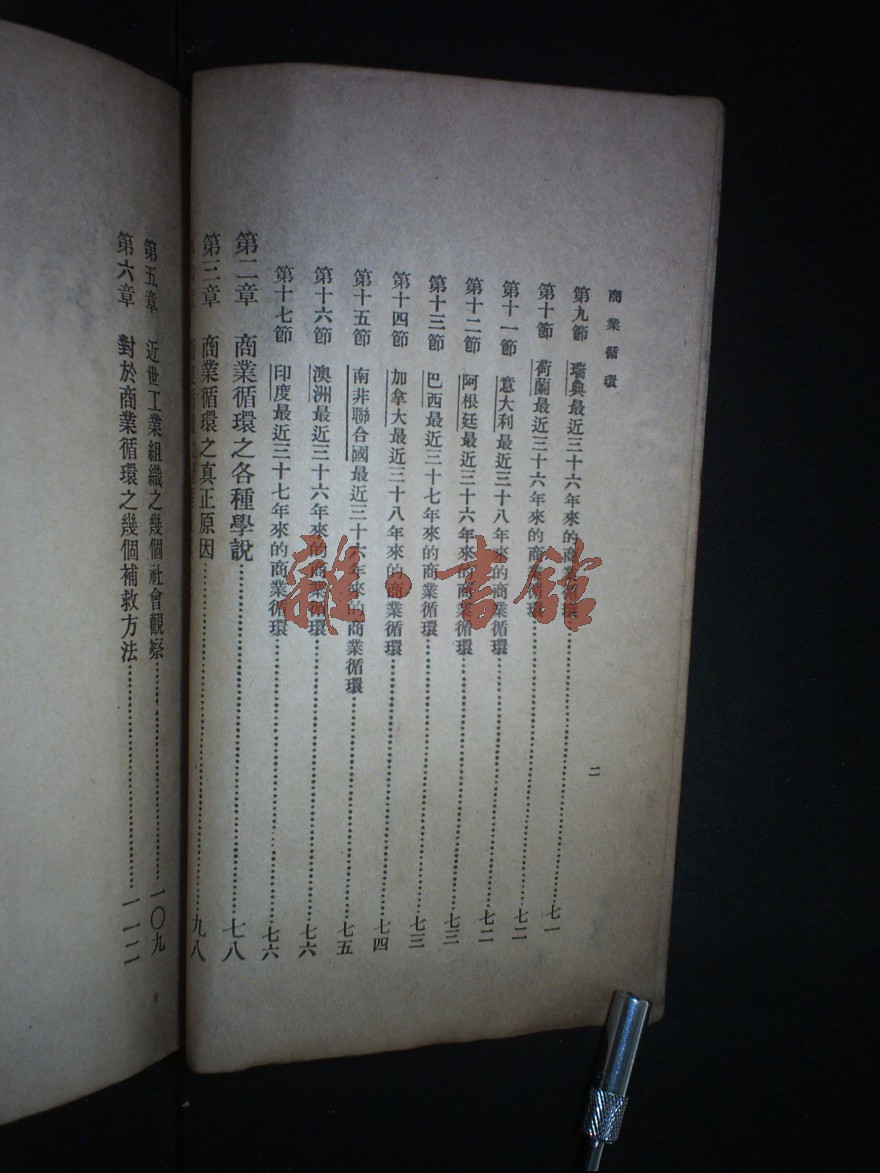 商業循環
二
第九節 瑞典最近三十六年來的商業循環……七一
第十節 荷蘭最近三十六年來的商業循環……七二
第十一節 意大利最近三十八年來的商業循環……七二
第十二節 阿根廷最近三十六年來的商業循環……七三
第十三節 巴西最近三十七年來的商業循環……七三
第十四節 加拿大最近三十八年來的商業循環……七四
第十五節 南非聯合國最近三十六年來的商業循環……七五
第十六節 澳洲最近三十六年來的商業循環……七六
第十七節 印度最近三十七年來的商業循環……七六
第二章 商業循環之各種學說……七八
第三章 商業循環之真正原因……九八
第五章 近世工業組織之幾個社會觀察……一〇九
第六章 對於商業循環之幾個補救方法……一一二
雜·書館